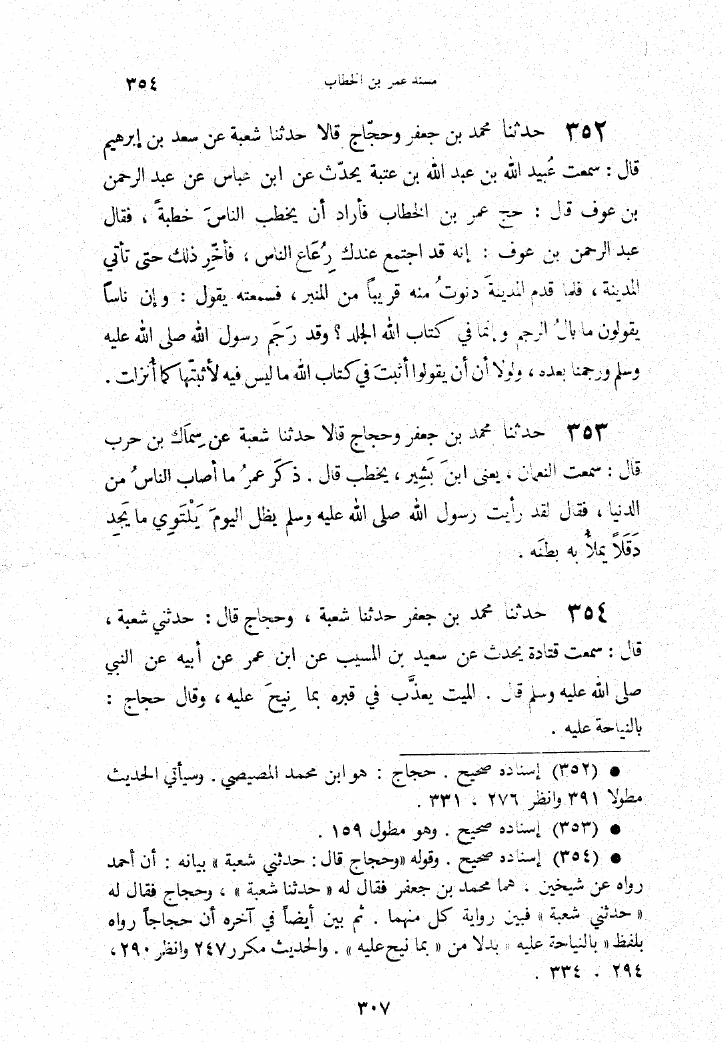 مسند عمر بن الخطاب ٣٥٤
٣٥٢ حدثنا محمد بن جعفر وحجّاج قالا حدثنا شعبة عن سعد بن إبرهيم
قال : سمعت عُبيد الله بن عبد الله بن عتبة يحدّث عن ابن عباس عن عبد الرحمن
بن عوف قال : حج عمر بن الخطاب فأراد أن يخطب الناسَ خطبةً ، فقال
عبد الرحمن بن عوف : إنه قد اجتمع عندك رِعُاع الناس ، فأخِّر ذلك حتى تأتي
المدينة ، فلما قدم المدينةَ دنوتُ منه قريباً من المنبر ، فسمعته يقول : وإن ناساً
يقولون ما بالُ الرجم وإنما في كتاب الله الجلد ؟ وقد رَجَم رسول الله صلى الله عليه
وسلم ورجمنا بعده ، ولولا أن أن يقولوا أثبتَ في كتاب الله ما ليس فيه لأثبتّها كما أُنزلت .
٣٥٣ حدثنا محمد بن جعفر وحجاج قالا حدثنا شعبة عن سِماَك بن حرب
قال : سمعت النعمان ، يعنى ابنَ بَشِير ، يخطب قال . ذكَر عمرُ ما أصاب الناسُ من
الدنيا ، فقال لقد رأيت رسول الله صلى الله عليه وسلم يظل اليومَ يَلْتَوِي ما يَجِد
دَقَلاً يملأُ به بطنَه .
٣٥٤ حدثنا محمد بن جعفر حدثنا شعبة ، وحجاج قال : حدثني شعبة ،
قال : سمعت قتادة يحدث عن سعيد بن المسيب عن ابن عمر عن أبيه عن النبي
صلى الله عليه وسلم قال . الميت يعذَّب في قبره بما نِيحَ عليه ، وقال حجاج :
بالنياحة عليه .
● (٣٥٢) إسناده صحيح . حجاج : هو ابن محمد المصيصي . وسيأتي الحديث
مطولا ٣٩١ وانظر ٢٧٦ ، ٣٣١ .
● (٣٥٣) إسناده صحيح . وهو مطول ١٥٩ .
● (٣٥٤) إسناده صحيح . وقوله «وحجاج قال : حدثني شعبة » بيانه : أن أحمد
رواه عن شيخين ، هما محمد بن جعفر فقال له « حدثنا شعبة » ، وحجاج فقال له
« حدثني شعبة » فبين رواية كل منهما . ثم بين أيضاً في آخره أن حجاجاً رواه
بلفظ « بالنياحة عليه » بدلا من « بما نيح عليه » . والحديث مكرر ٢٤٧ وانظر ٢٩٠ ،
٢٩٤ ، ٣٣٤ .
٣٠٧